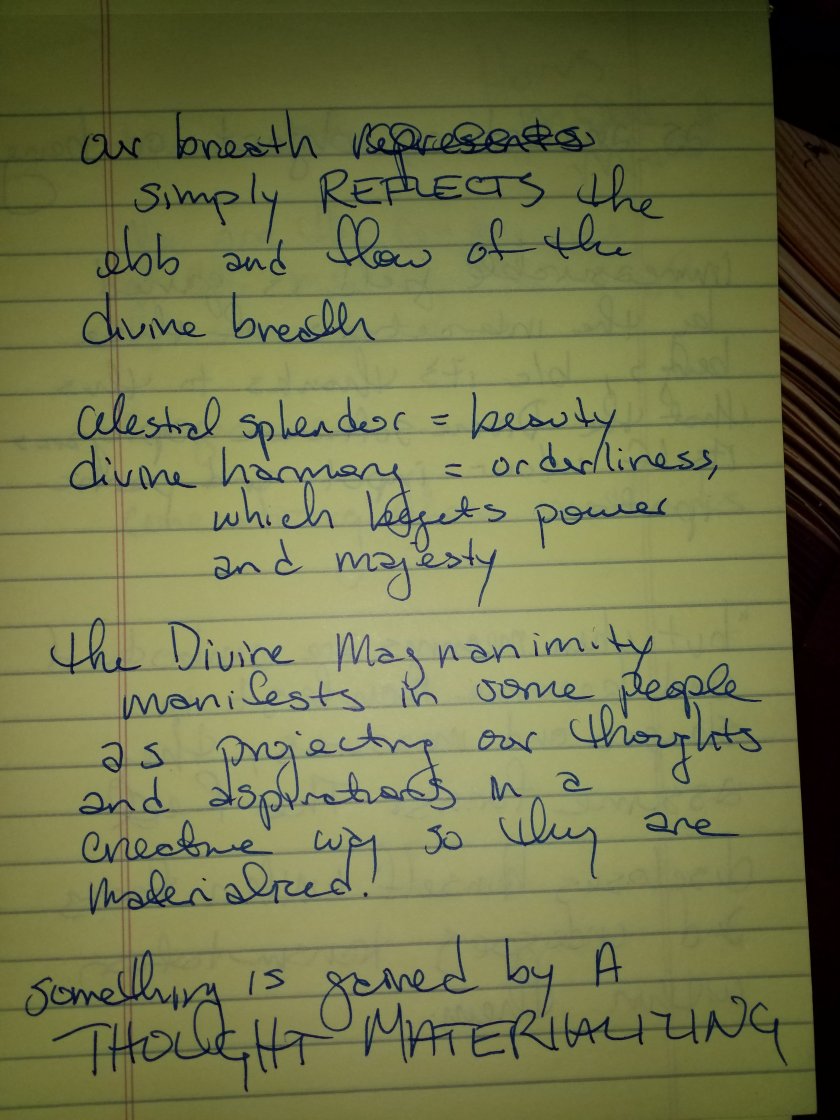 our breath represents
simply REFLECTS the
ebb and flow of the
divine breath
celestial splendor = beauty
divine harmony = orderliness,
which begets power
and majesty
the Divine Magnanimity
manifests in some people
as projecting our thoughts
and aspirations in a
creative way so they are
materialized!
something is gained by A
THOUGHT MATERIALIZING